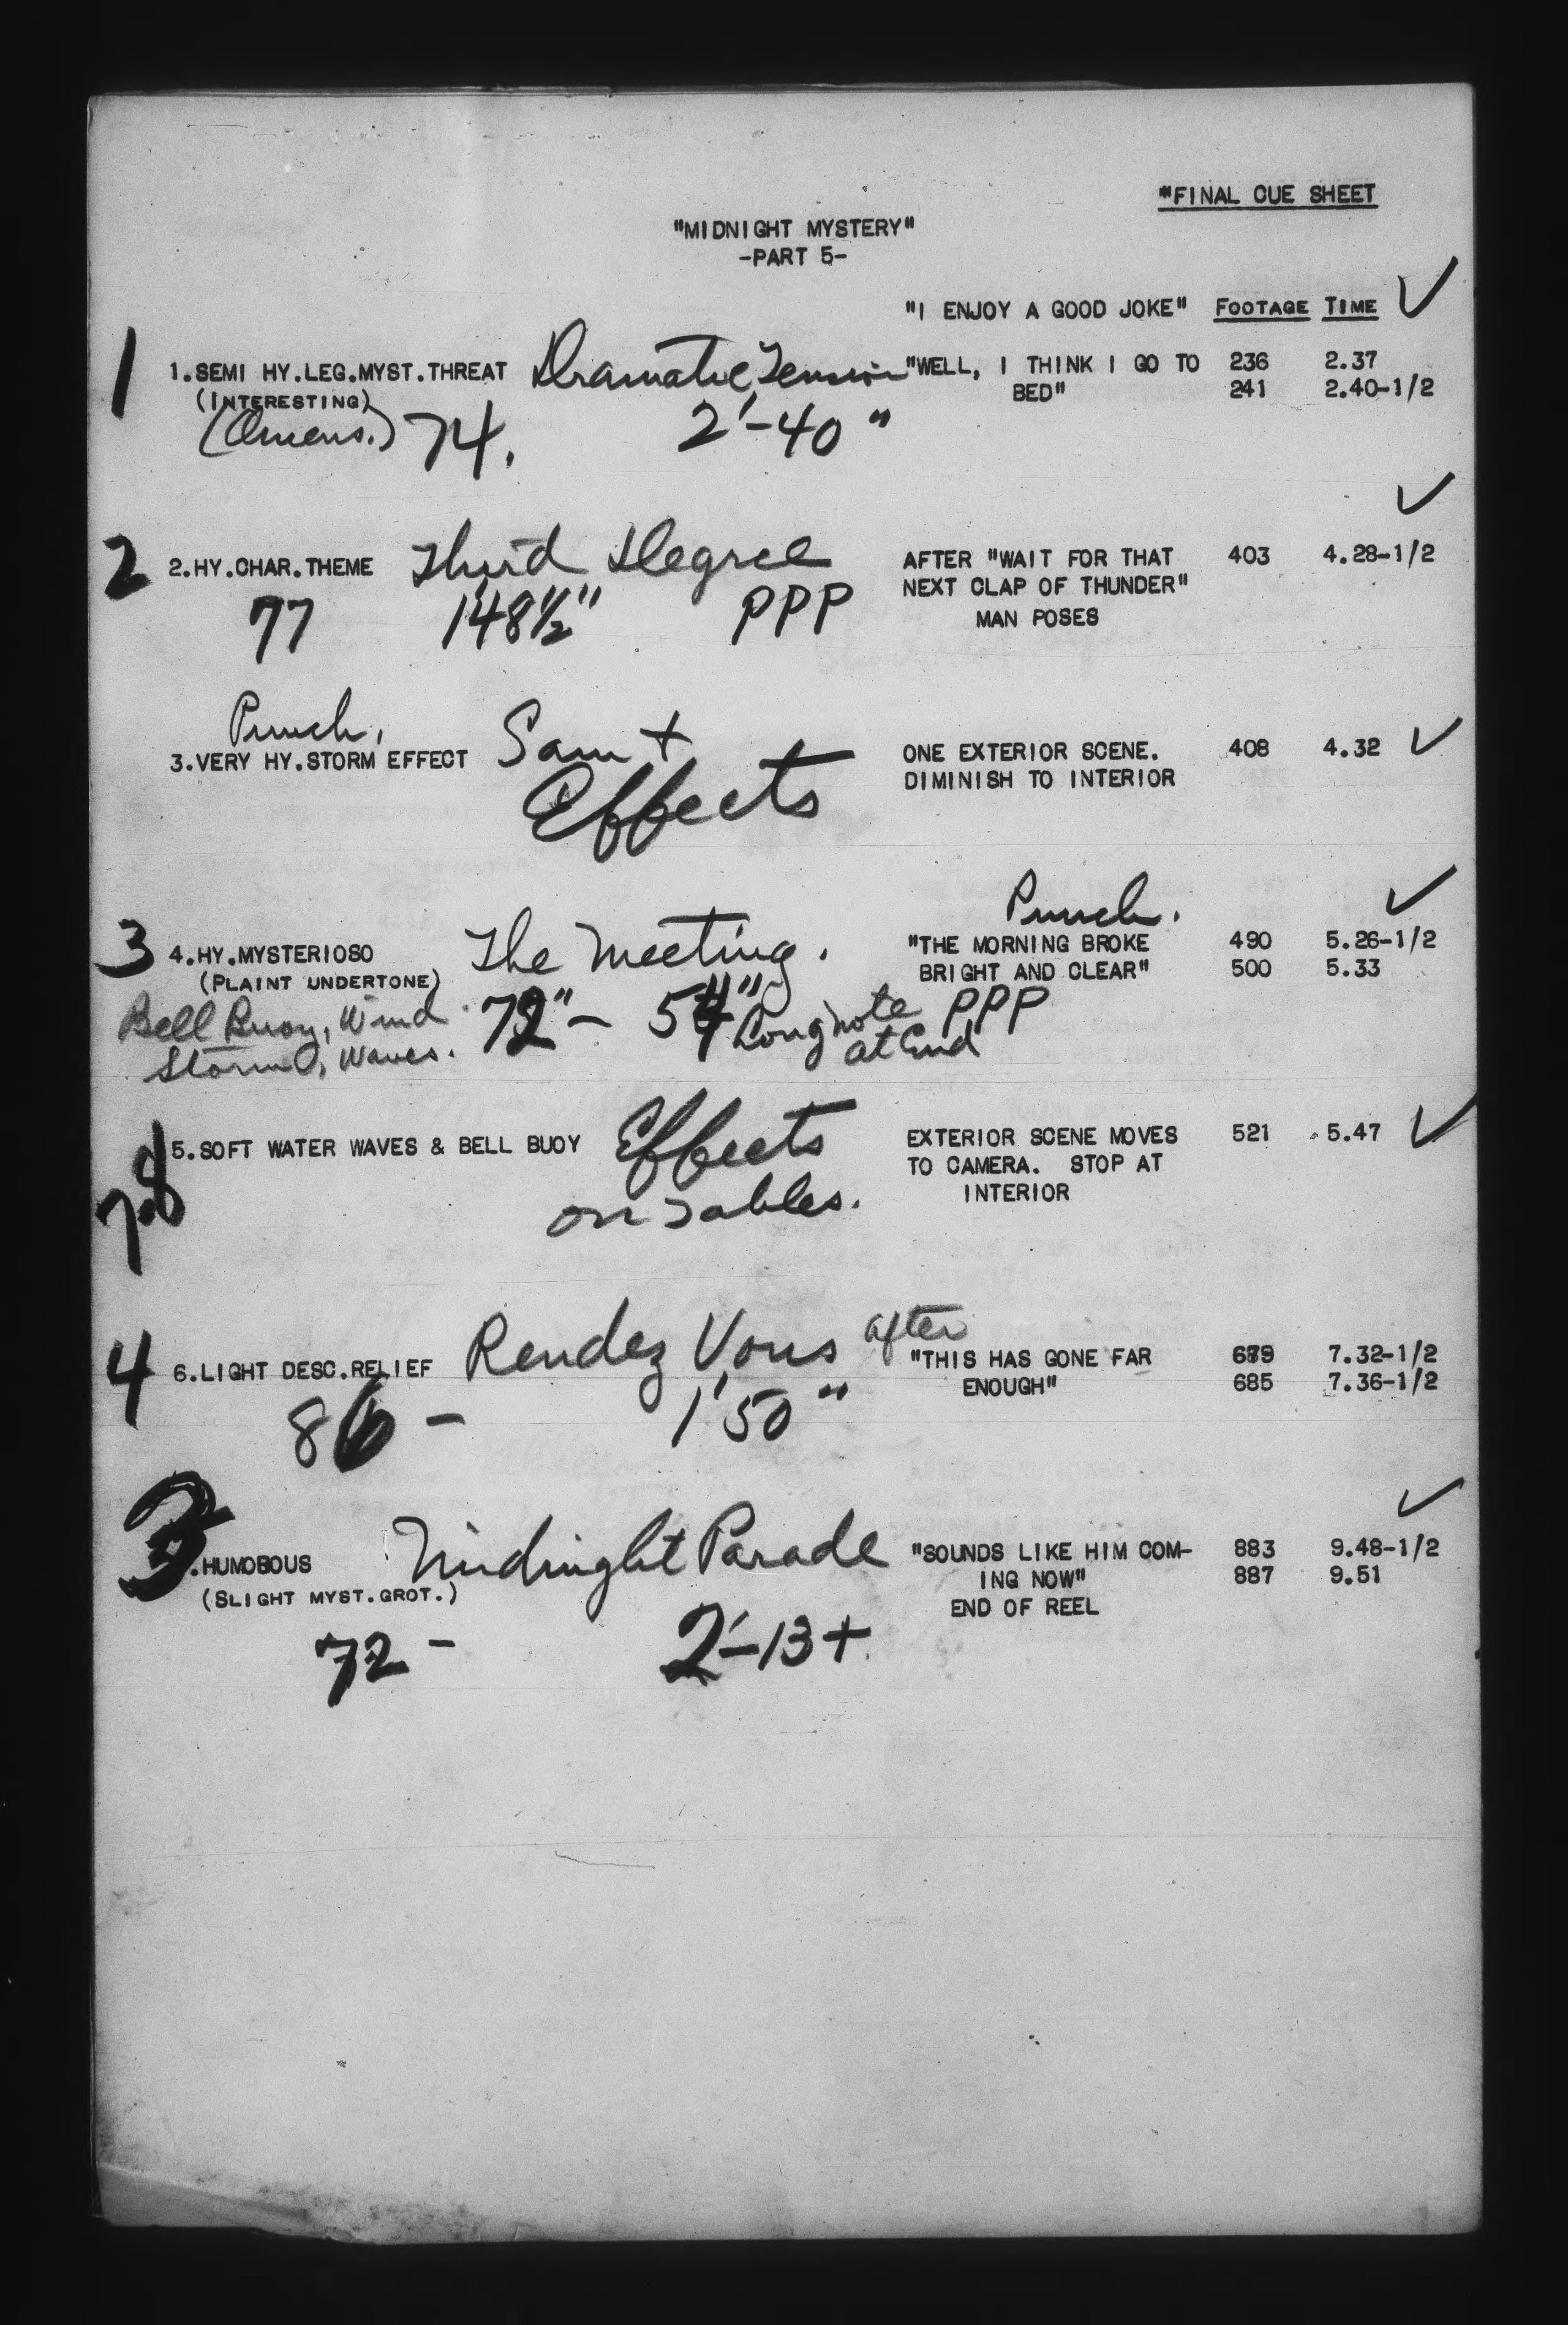 "FINAL CUE SHEET
"MIDNIGHT MYSTERY"
-PART 5-
"I ENJOY A GOOD JOKE" FOOTAGE TIME ✓
1 1.SEMI HY.LEG.MYST.THREAT Dramatic Tension "WELL, I THINK I GO TO 236 2.37
(INTERESTING) BED" 241 2.40-1/2
(Omens.) 74. 2'-40"
✓
2 2.HY.CHAR.THEME Third Degree AFTER "WAIT FOR THAT 403 4.28-1/2
NEXT CLAP OF THUNDER"
77 1'48½" PPP MAN POSES
Punch.
3.VERY HY.STORM EFFECT Sam + ONE EXTERIOR SCENE. 408 4.32 ✓
Effects DIMINISH TO INTERIOR
Punch. ✓
3 4.HY.MYSTERIOSO The Meeting. "THE MORNING BROKE 490 5.26-1/2
(PLAINT UNDERTONE) BRIGHT AND CLEAR" 500 5.33
Bell Buoy, Wind 72" - Long note PPP
Storm, Waves. at End
5.SOFT WATER WAVES & BELL BUOY Effects EXTERIOR SCENE MOVES 521 5.47 ✓
TO CAMERA. STOP AT
on Sables. INTERIOR
4 6.LIGHT DESC.RELIEF Rendez Vous after "THIS HAS GONE FAR 679 7.32-1/2
ENOUGH" 685 7.36-1/2
86 - 1'50"
✓
.HUMOROUS Midnight Parade "SOUNDS LIKE HIM COM- 883 9.48-1/2
(SLIGHT MYST.GROT.) ING NOW" 887 9.51
END OF REEL
72 - 2'-13+